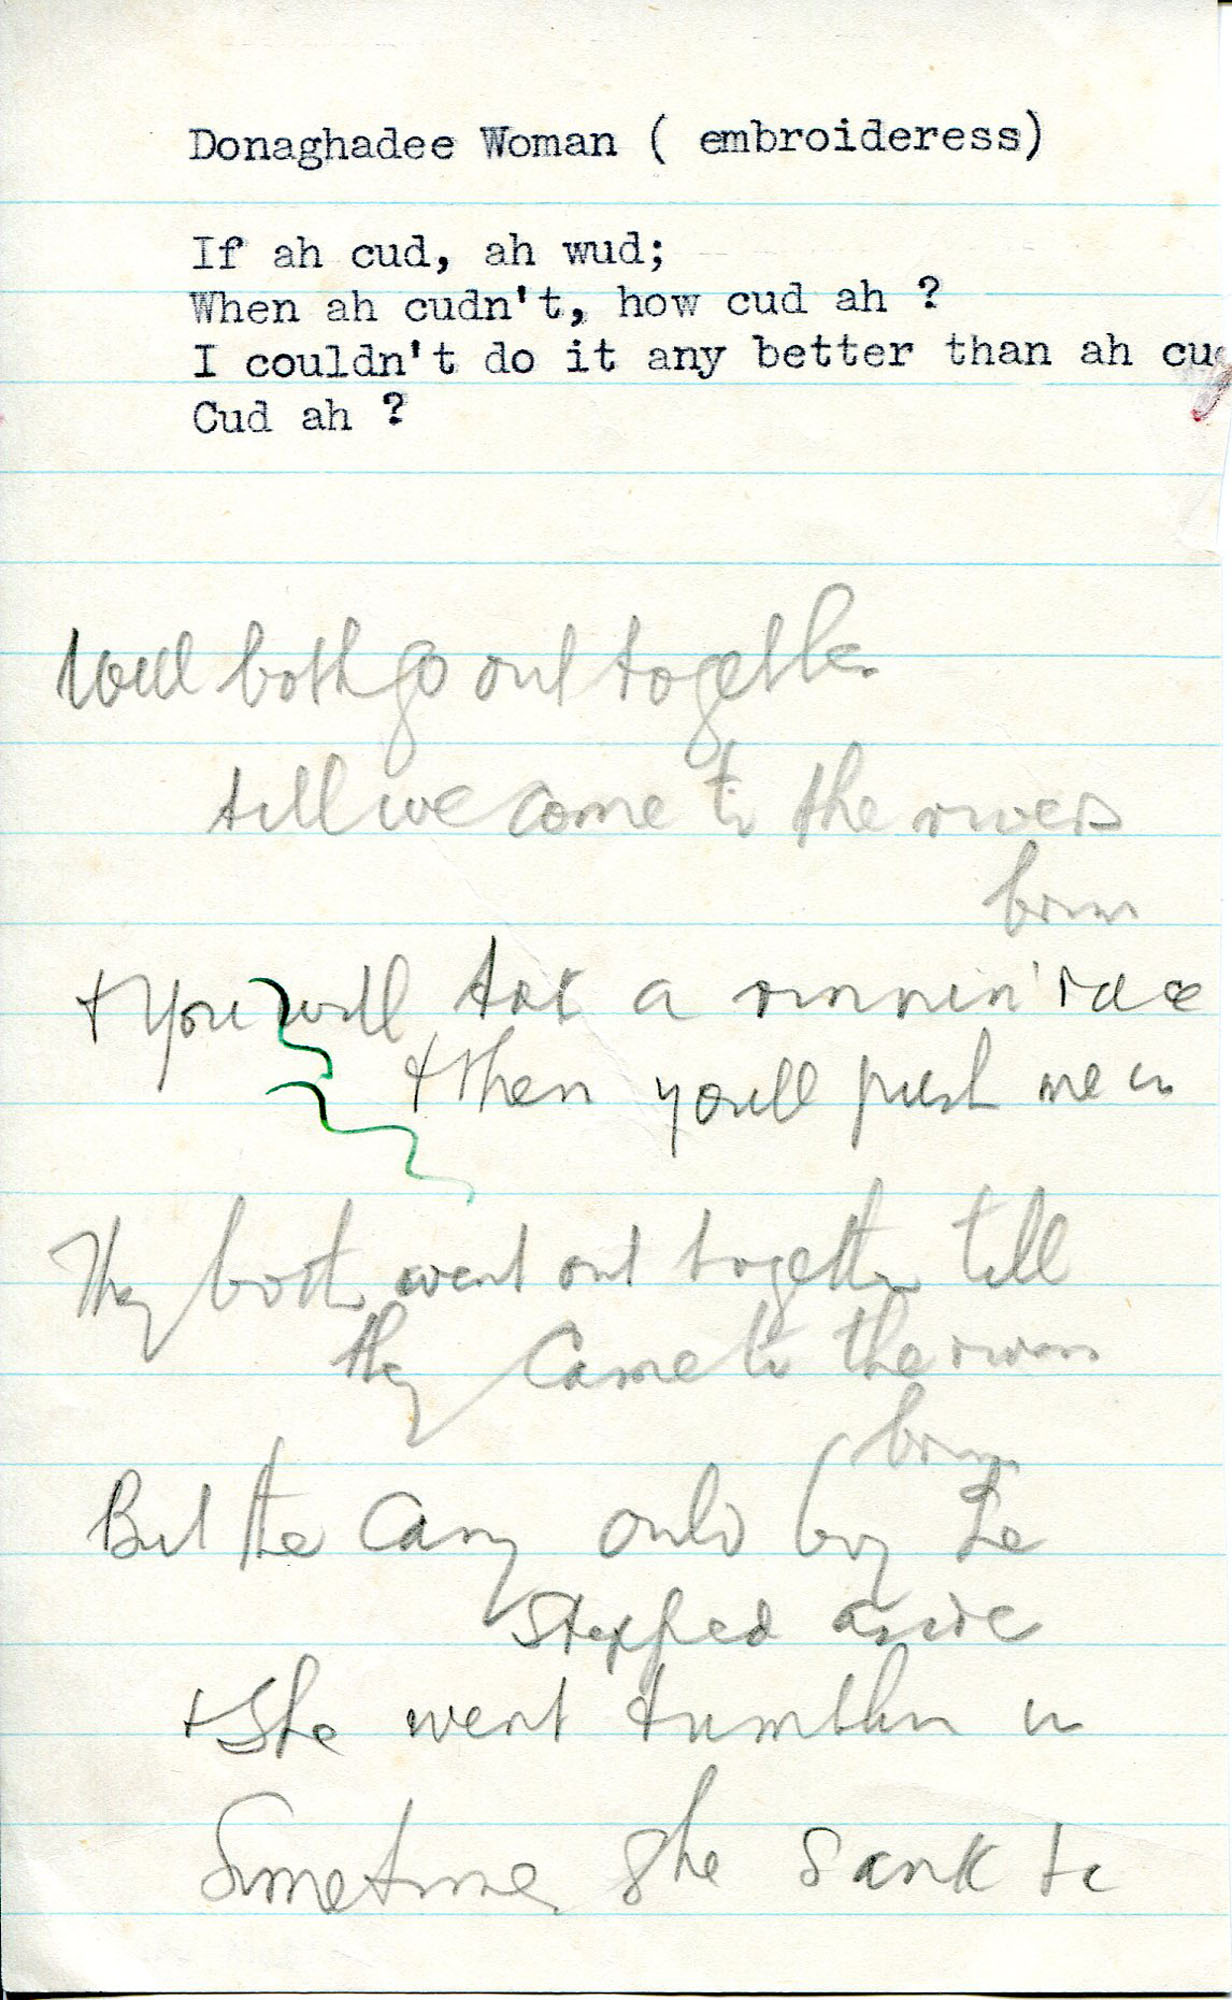 Donaghadee Woman ( embroideress)
If ah cud, ah wud;
When ah cudn't, how cud ah ?
I couldn't do it any better than ah cud
Cud ah ?
both go out together
till we come to the rivers
brim
+ You will tak a runnin' race
+ then youll push me in
They both went out together till
they Came to the rivers
brim
But the Canny ould boy he
Stepped aside
+ She went tumblin in
Sometime she sank to